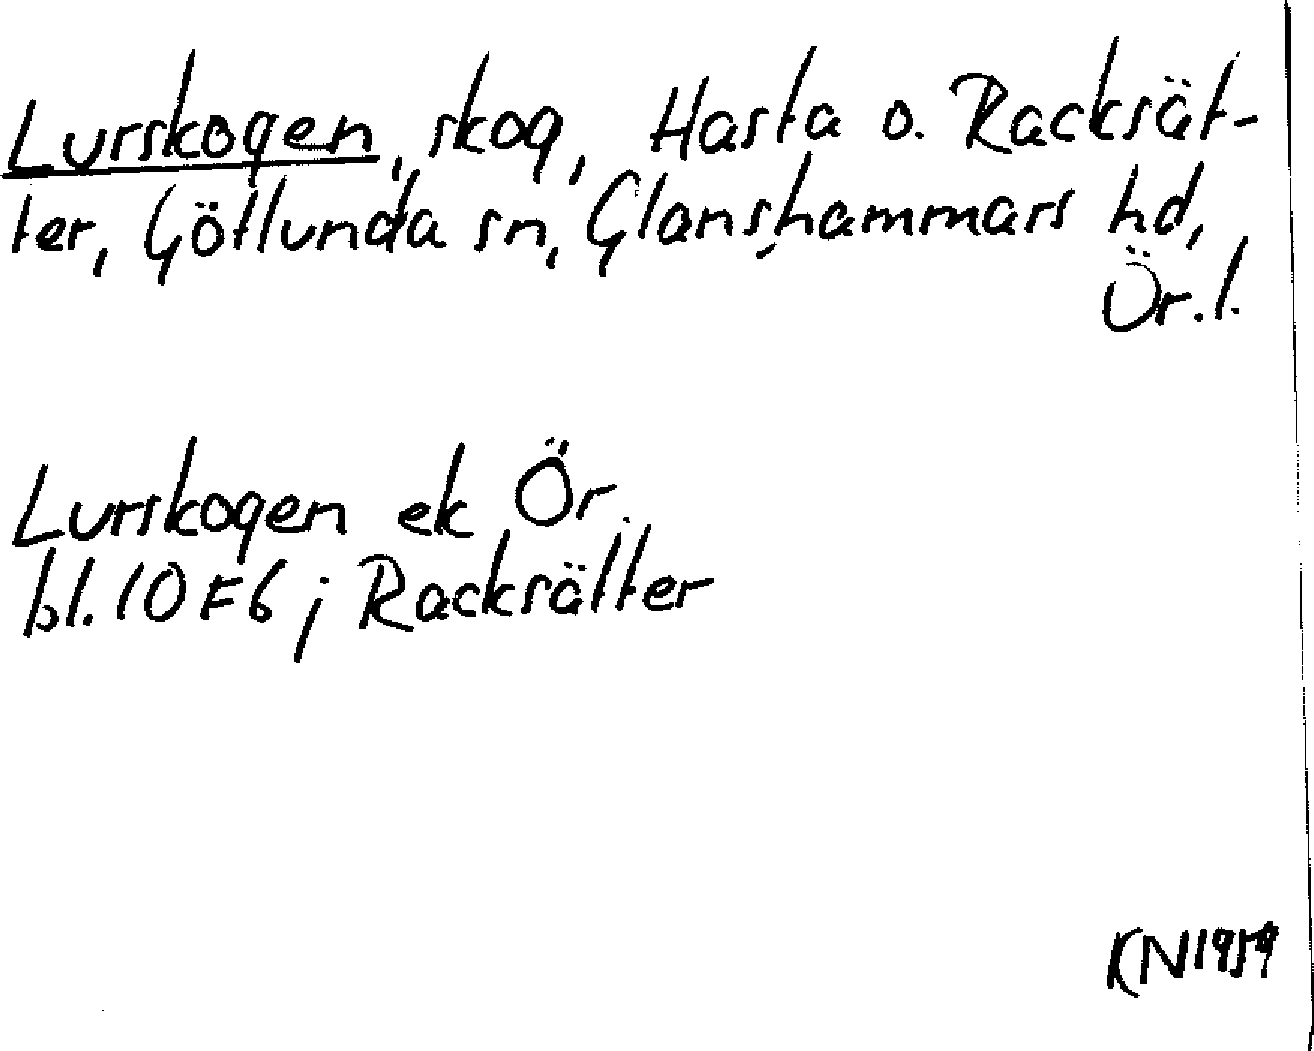 Lurskogen, skog, Hasta o. Racksät-
ter, Götlunda sn, Glanshammars hd,
Ör. l.
Lurskogen ek Ör.
bl. 10F6; Racksätter
KN 1959